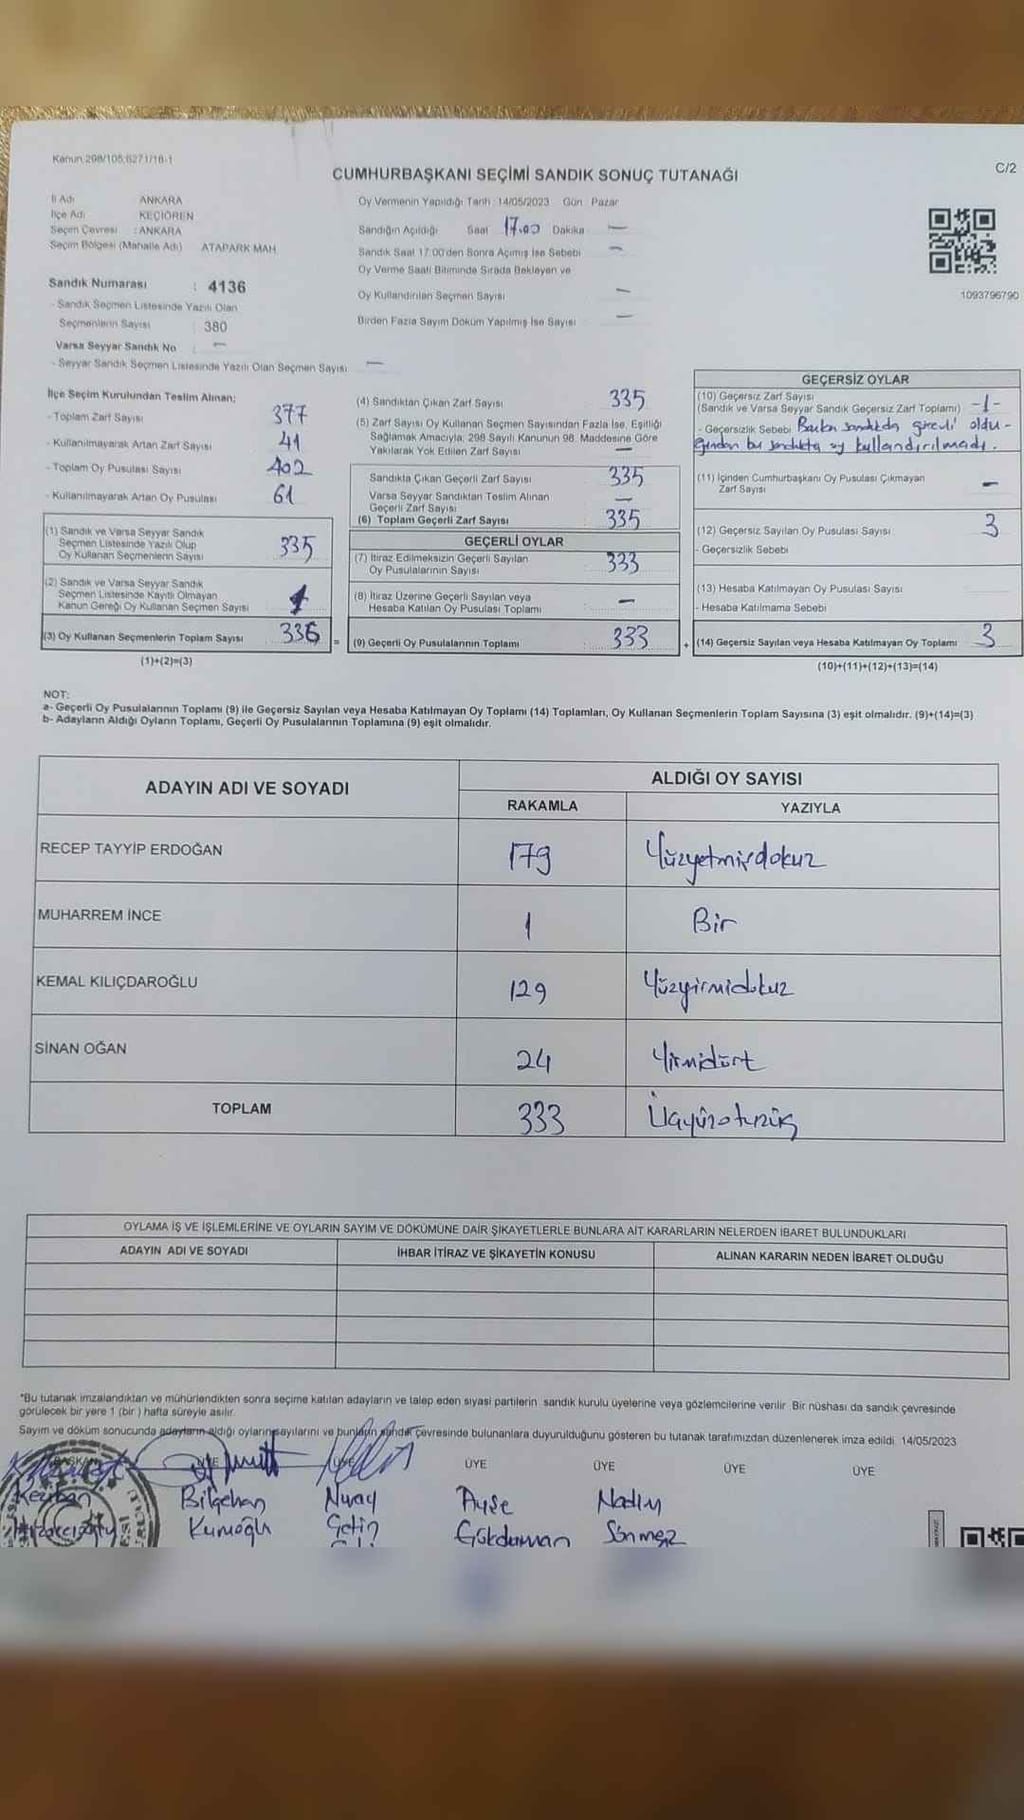 Kanun 298/105;6271/18-1
C/2
CUMHURBAŞKANI SEÇİMİ SANDIK SONUÇ TUTANAĞI
İl Adı ANKARA
İlçe Adı KEÇİÖREN
Seçim Çevresi : ANKARA
Seçim Bölgesi (Mahalle Adı) ATAPARK MAH
Sandık Numarası : 4136
- Sandık Seçmen Listesinde Yazılı Olan
Seçmenlerin Sayısı 380
Varsa Seyyar Sandık No : —
- Seyyar Sandık Seçmen Listesinde Yazılı Olan Seçmen Sayısı —
Oy Vermenin Yapıldığı Tarih 14/05/2023 Gün Pazar
Sandığın Açıldığı Saat 17.00 Dakika —
Sandık Saat 17.00'den Sonra Açılmış İse Sebebi —
Oy Verme Saati Bitiminde Sırada Bekleyen ve
Oy Kullandırılan Seçmen Sayısı —
Birden Fazla Sayım Döküm Yapılmış İse Sayısı —
1093796790
İlçe Seçim Kurulundan Teslim Alınan;
- Toplam Zarf Sayısı 377
- Kullanılmayarak Artan Zarf Sayısı 41
- Toplam Oy Pusulası Sayısı 402
- Kullanılmayarak Artan Oy Pusulası 61
(1) Sandık ve Varsa Seyyar Sandık
Seçmen Listesinde Yazılı Olup
Oy Kullanan Seçmenlerin Sayısı 335
(2) Sandık ve Varsa Seyyar Sandık
Seçmen Listesinde Kayıtlı Olmayan
Kanun Gereği Oy Kullanan Seçmen Sayısı 1
(3) Oy Kullanan Seçmenlerin Toplam Sayısı 336 =
(1)+(2)=(3)
(4) Sandıktan Çıkan Zarf Sayısı 335
(5) Zarf Sayısı Oy Kullanan Seçmen Sayısından Fazla İse, Eşitliği
Sağlamak Amacıyla, 298 Sayılı Kanunun 98. Maddesine Göre
Yakılarak Yok Edilen Zarf Sayısı —
Sandıkta Çıkan Geçerli Zarf Sayısı 335
Varsa Seyyar Sandıktan Teslim Alınan
Geçerli Zarf Sayısı —
(6) Toplam Geçerli Zarf Sayısı 335
GEÇERLİ OYLAR
(7) İtiraz Edilmeksizin Geçerli Sayılan
Oy Pusulalarının Sayısı 333
(8) İtiraz Üzerine Geçerli Sayılan veya
Hesaba Katılan Oy Pusulası Toplamı —
(9) Geçerli Oy Pusulalarının Toplamı 333 +
GEÇERSİZ OYLAR
(10) Geçersiz Zarf Sayısı
(Sandık ve Varsa Seyyar Sandık Geçersiz Zarf Toplamı) -1-
- Geçersizlik Sebebi Başka sandıkda görevli oldu-
ğundan bu sandıkta oy kullandırılmadı.
(11) İçinden Cumhurbaşkanı Oy Pusulası Çıkmayan
Zarf Sayısı —
(12) Geçersiz Sayılan Oy Pusulası Sayısı 3
- Geçersizlik Sebebi
(13) Hesaba Katılmayan Oy Pusulası Sayısı
- Hesaba Katılmama Sebebi
(14) Geçersiz Sayılan veya Hesaba Katılmayan Oy Toplamı 3
(10)+(11)+(12)+(13)=(14)
NOT:
a- Geçerli Oy Pusulalarının Toplamı (9) ile Geçersiz Sayılan veya Hesaba Katılmayan Oy Toplamı (14) Toplamları, Oy Kullanan Seçmenlerin Toplam Sayısına (3) eşit olmalıdır. (9)+(14)=(3)
b- Adayların Aldığı Oyların Toplamı, Geçerli Oy Pusulalarının Toplamına (9) eşit olmalıdır.
ADAYIN ADI VE SOYADI
ALDIĞI OY SAYISI
RAKAMLA YAZIYLA
RECEP TAYYİP ERDOĞAN 179 Yüzyetmişdokuz
MUHARREM İNCE 1 Bir
KEMAL KILIÇDAROĞLU 129 Yüzyirmidokuz
SİNAN OĞAN 24 Yirmidört
TOPLAM 333 Üçyüzotuzüç
OYLAMA İŞ VE İŞLEMLERİNE VE OYLARIN SAYIM VE DÖKÜMÜNE DAİR ŞİKAYETLERLE BUNLARA AİT KARARLARIN NELERDEN İBARET BULUNDUKLARI
ADAYIN ADI VE SOYADI İHBAR İTİRAZ VE ŞİKAYETİN KONUSU ALINAN KARARIN NEDEN İBARET OLDUĞU
*Bu tutanak imzalandıktan ve mühürlendikten sonra seçime katılan adayların ve talep eden siyasi partilerin sandık kurulu üyelerine veya gözlemcilerine verilir Bir nüshası da sandık çevresinde
görülecek bir yere 1 (bir ) hafta süreyle asılır.
Sayım ve döküm sonucunda adayların aldığı oyların sayılarını ve bunların sandık çevresinde bulunanlara duyurulduğunu gösteren bu tutanak tarafımızdan düzenlenerek imza edildi. 14/05/2023
BAŞKAN ÜYE ÜYE ÜYE ÜYE ÜYE ÜYE
Bilgehan Nuray Ayşe Nadim
Kumoğlu Çetin Gökduman Sönmez